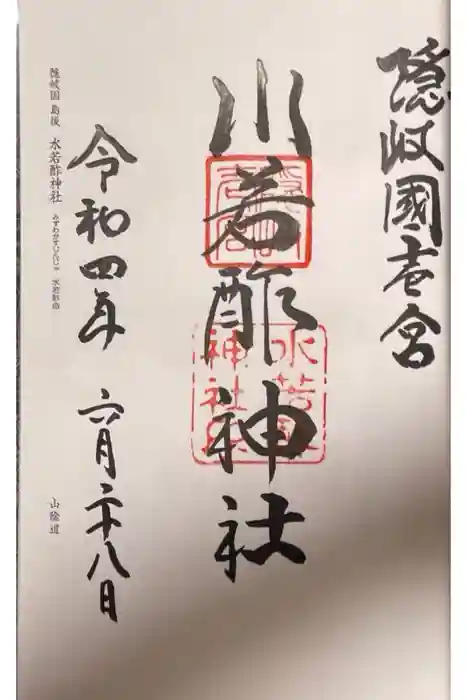 隠岐國壱宮
水若酢神社
水若酢
神社
令和四年 六月二十八日
隠岐国 島後 水若酢神社 みずわかすじんじゃ
山陰道